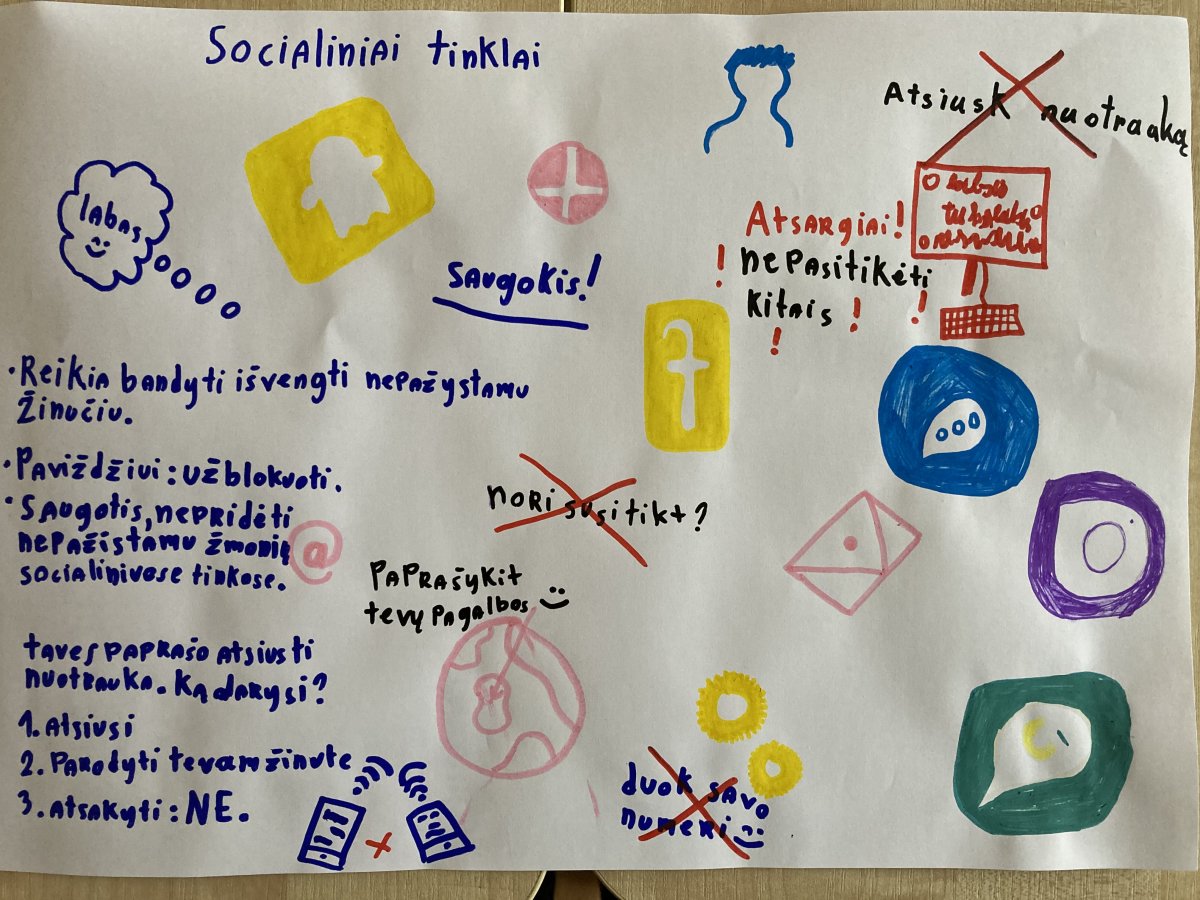 Socialiniai tinklai
Atsiusk nuotraaką
labas
Saugokis!
Atsargiai!
nepasitikėti
kitais
Reikia bandyti išvengti nepažystamu
žinučiu.
Paviždživi: užblokuoti.
Saugotis, nepridėti
nepažistamu žmonių
socialinivose tinkose.
@
nori susitikt?
Paprašykit
tevų pagalbos
taves paprašo atsiusti
nuotrauka. Ką darysi?
1. Atsiusi
2. Parodyti tevam žinute
3. Atsakyti: NE.
duok savo
numeri